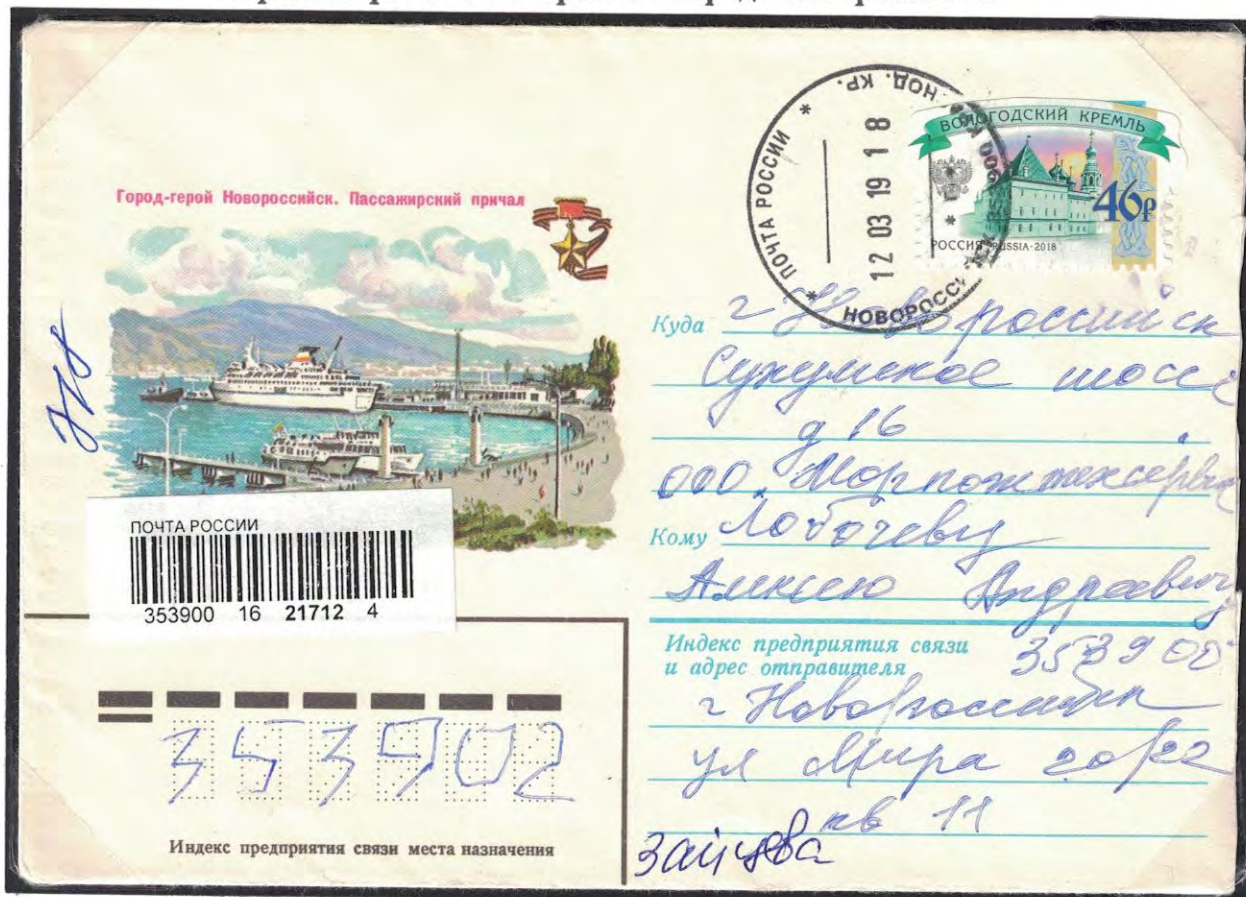 Город-герой Новороссийск. Пассажирский причал
ПОЧТА РОССИИ
НОВОРОССИЙСК
12 03 19 18
ВОЛОГОДСКИЙ КРЕМЛЬ
46₽
РОССИЯ RUSSIA·2018
Куда г Новороссийск
Сухумское шоссе
д 16
ООО "Морпожтехсервис"
Кому Лобачеву
Алексею Андреевичу
Индекс предприятия связи
и адрес отправителя 353900
г Новороссийск
ул Мира
кв 11
Зайцева
ПОЧТА РОССИИ
353900 16 21712 4
353902
Индекс предприятия связи места назначения